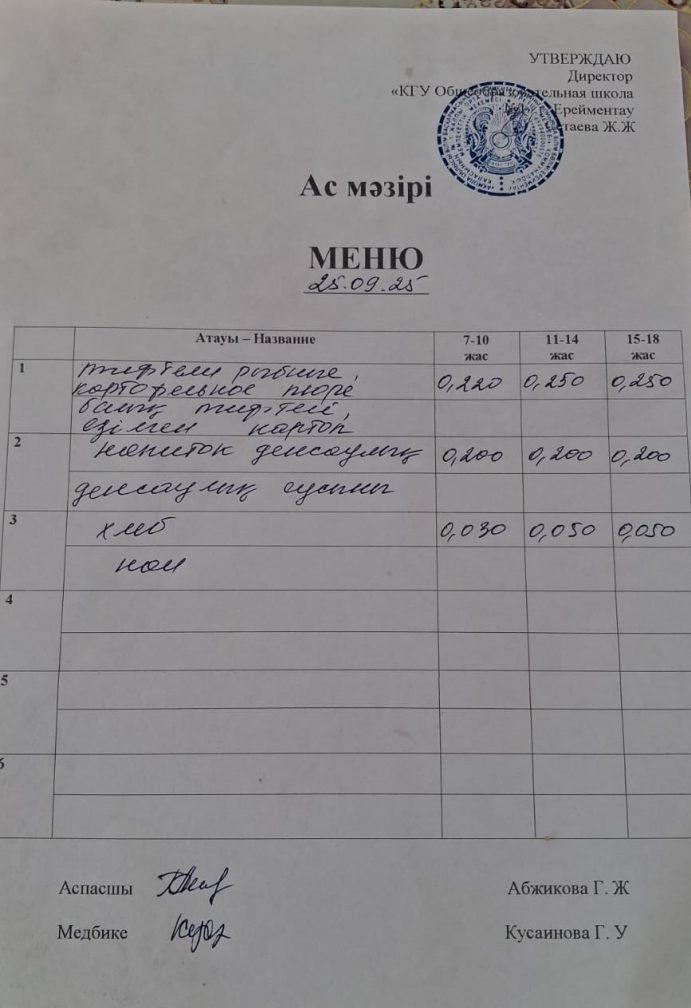 УТВЕРЖДАЮ
Директор
«КГУ Общеобразовательная школа
Ерейментау
Ж.Ж
Ас мәзірі
МЕНЮ
25.09.25
Атауы – Название 7-10 жас 11-14 жас 15-18 жас
1 тифтели рыбные, 0,220 0,250 0,250
картофельное пюре
балық тифтелі,
езілген картоп
2 напиток денсаулық 0,200 0,200 0,200
денсаулық сусыны
3 хлеб 0,030 0,050 0,050
нан
4
5
6
Аспасшы Абжикова Г. Ж
Медбике Кусаинова Г. У